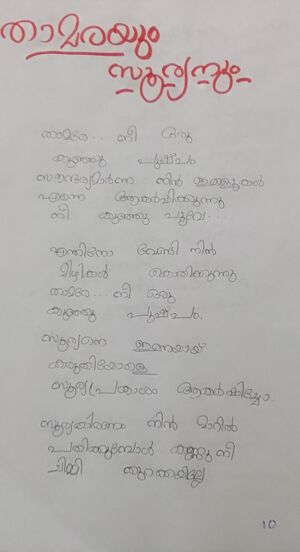 താമരയും
സൂര്യനും
താമരേ... നീ ഒരു
കുഞ്ഞു പുഷ്പം
സൗന്ദര്യമാർന്ന നിൻ ഇതളുകൾ
എന്നെ ആകർഷിക്കുന്നു
നീ കുഞ്ഞു പൂവേ....
എന്തിനോ വേണ്ടി നിൻ
മിഴികൾ കൊതിക്കുന്നു
താമരേ... നീ ഒരു
കുഞ്ഞു പുഷ്പം.
സൂര്യനെ ഇണയായ്
കരുതിയോളെ
സൂര്യപ്രകാശം ആകർഷിച്ചോ.
സൂര്യകിരണം നിൻ മാറിൽ
പതിക്കുമ്പോൾ കണ്ണു നീ
ചിമ്മി തുറക്കയില്ലേ
10